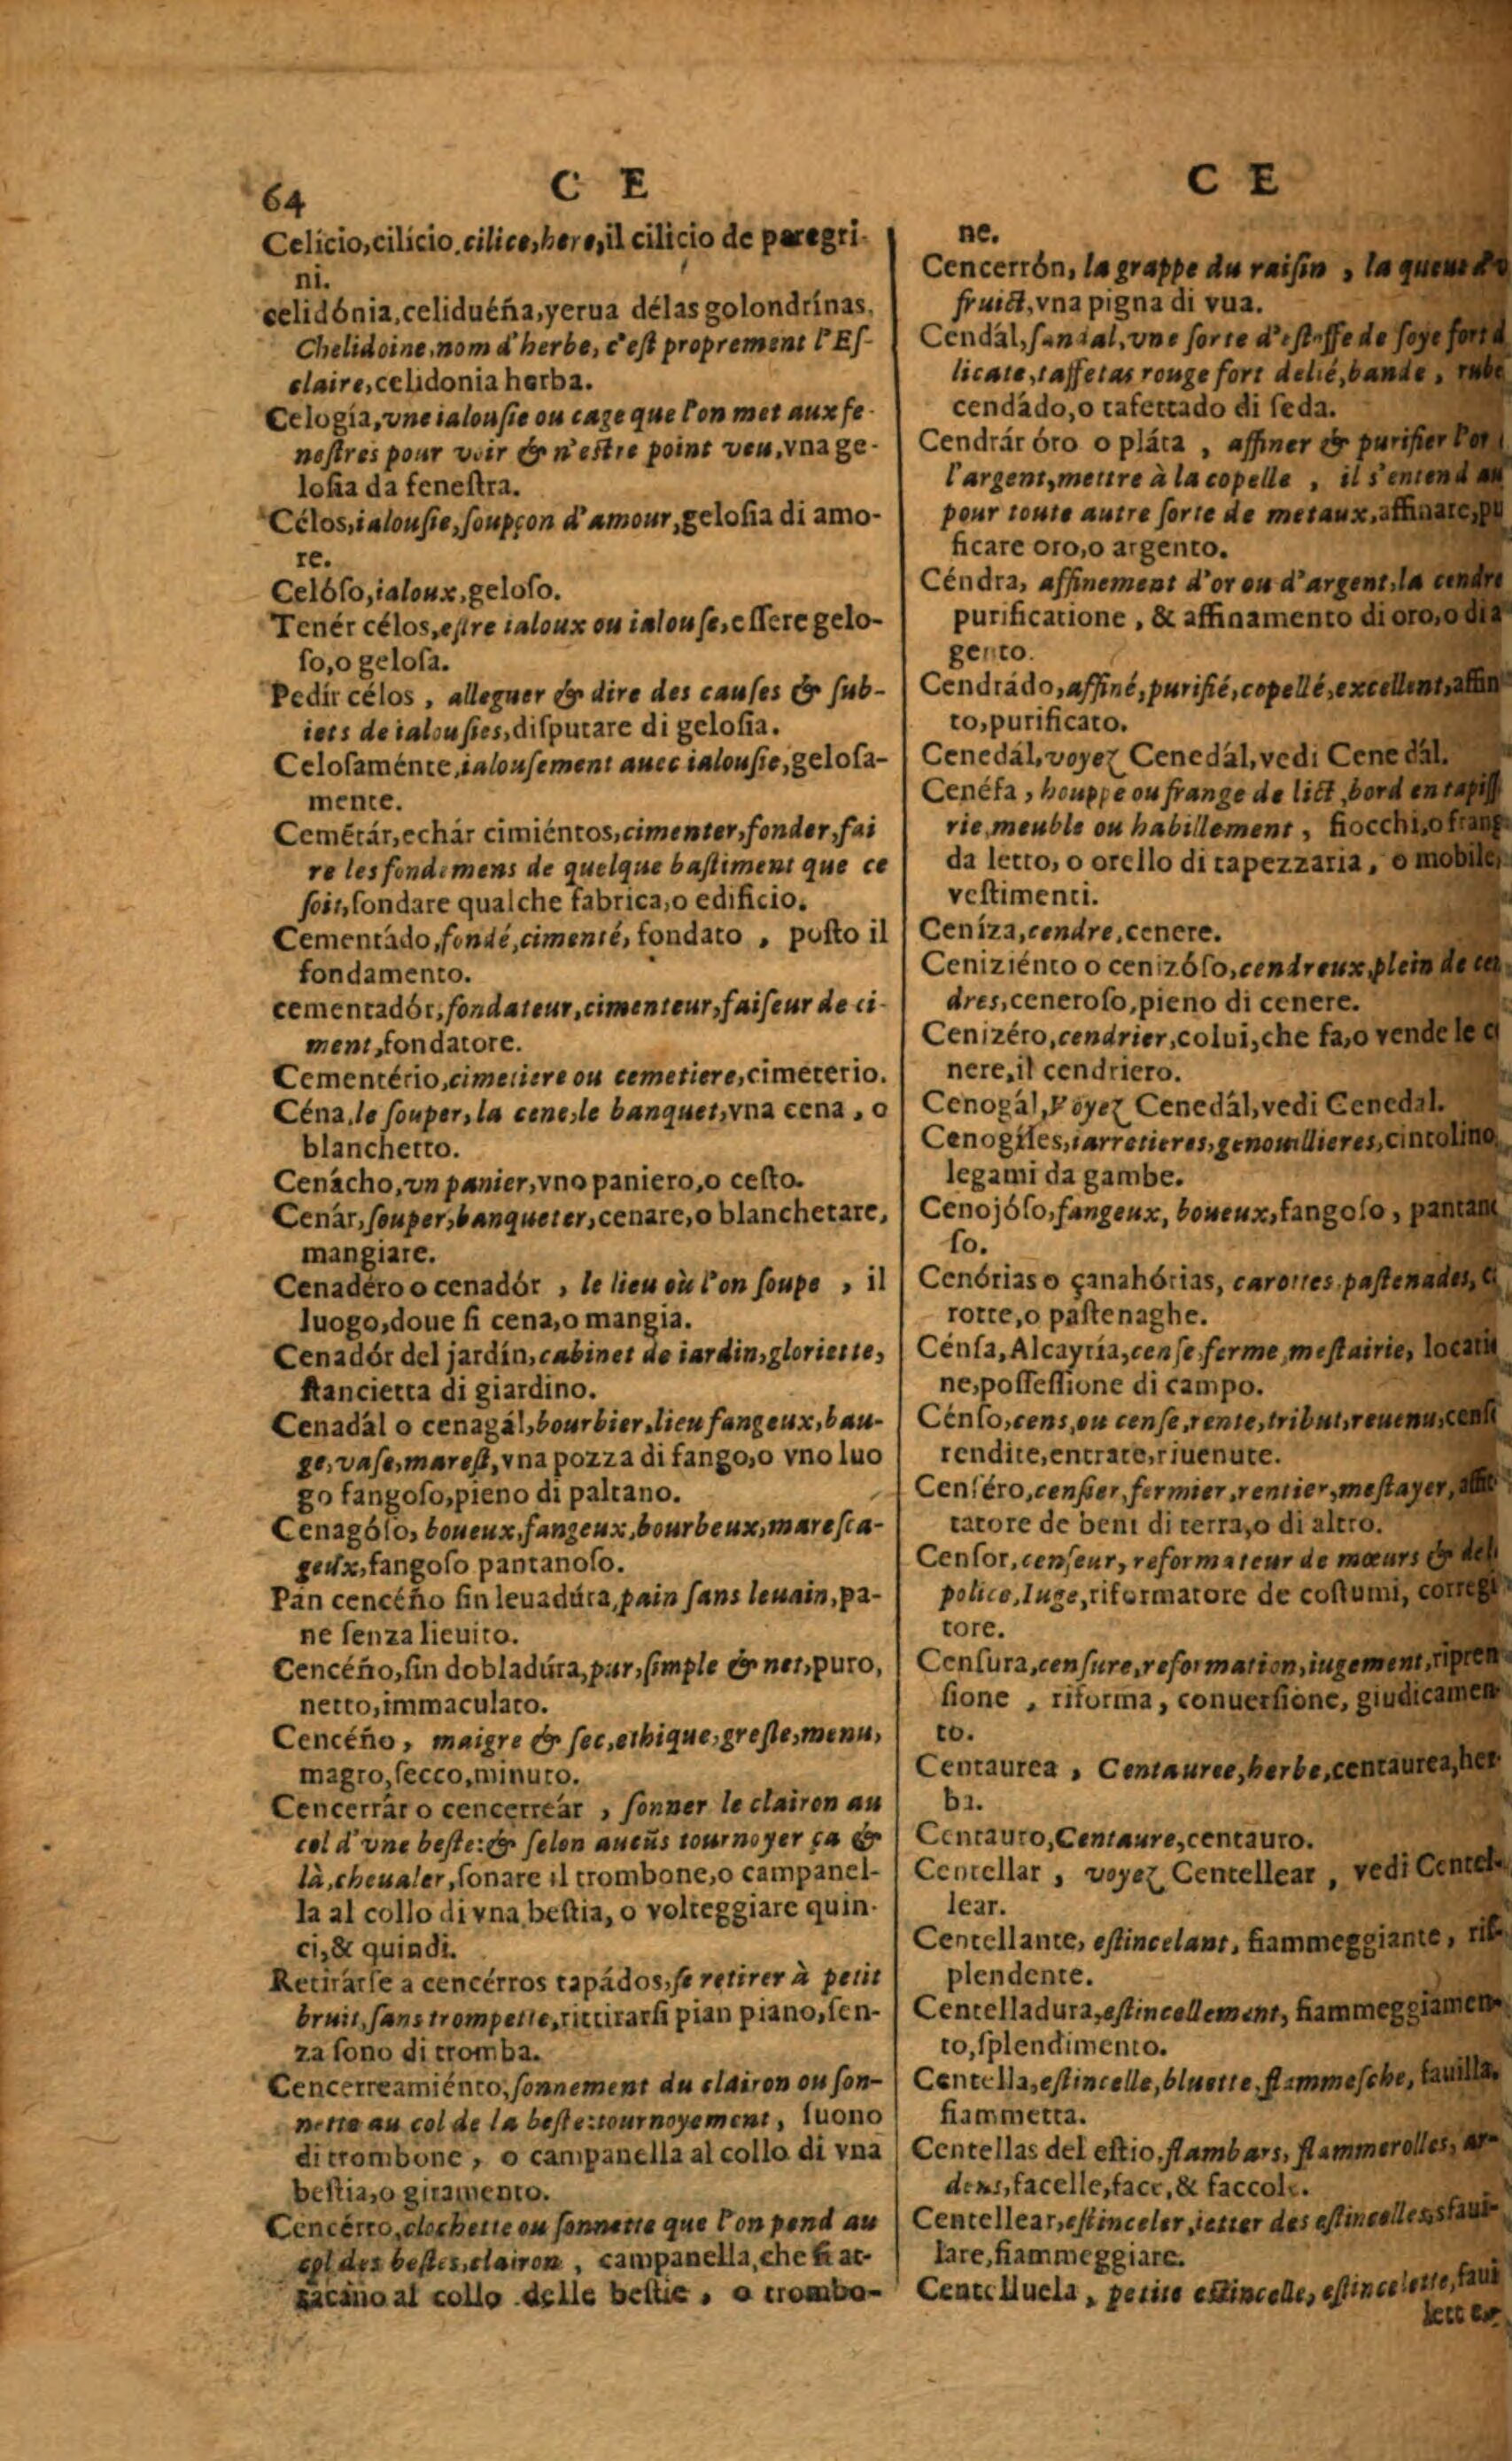 64
C E
Celicio,cilício,cilice,here,il cilicio de paregri-
ni.
celidónia,celiduéña,yerua délas golondrínas,
Chelidoine,nom d'herbe, c'eſt proprement l'Eſ-
claire,celidonia herba.
Celogía,vne ialouſie ou cage que l'on met aux fe-
neſtres pour voir & n'eſtre point veu,vna ge-
loſia da feneſtra.
Célos,ialouſie,ſoupçon d'amour,geloſia di amo-
re.
Celóſo,ialoux,geloſo.
Tenér célos,eſtre ialoux ou ialouſe,eſſere gelo-
ſo,o geloſa.
Pedír célos , alleguer & dire des cauſes & ſub-
iets de ialouſies,diſputare di geloſia.
Celoſaménte,ialouſement auec ialouſie,geloſa-
mente.
Cemẽtár,echár cimiéntos,cimenter,fonder,fai
re les fondemens de quelque baſtiment que ce
ſoit,fondare qualche fabrica,o edificio.
Cementádo,fondé,cimenté, fondato , poſto il
fondamento.
cementadór,fondateur,cimenteur,faiſeur de ci-
ment,fondatore.
Cementério,cimetiere ou cemetiere,cimeterio.
Céna,le ſouper,la cene,le banquet,vna cena , o
blanchetto.
Cenácho,vn panier,vno paniero,o ceſto.
Cenár,ſouper,banqueter,cenare,o blanchetare,
mangiare.
Cenadéro o cenadór , le lieu où l'on ſoupe , il
luogo,doue ſi cena,o mangia.
Cenadór del jardín,cabinet de iardin,gloriette,
ſtancietta di giardino.
Cenadál o cenagál,bourbier,lieu fangeux,bau-
ge,vaſe,mareſt,vna pozza di fango,o vno luo
go fangoſo,pieno di paltano.
Cenagóſo, boueux,fangeux,bourbeux,mareſca-
geux,fangoſo pantanoſo.
Pan cencéño ſin leuadúra,pain ſans leuain,pa-
ne ſenza lieuito.
Cencéño,ſin dobladúra,pur,ſimple & net,puro,
netto,immaculato.
Cencéño, maigre & ſec,ethique,greſle,menu,
magro,ſecco,minuto.
Cencerrár o cencerreár , ſonner le clairon au
col d'vne beſte:& ſelon aucũs tournoyer ça &
là,cheualer,ſonare il trombone,o campanel-
la al collo di vna beſtia, o volteggiare quin-
ci,& quindi.
Retirárſe a cencérros tapádos,ſe retirer à petit
bruit,ſans trompette,rittirarſi pian piano,ſen-
za ſono di tromba.
Cencerreamiénto,ſonnement du clairon ou ſon-
nette au col de la beſte:tournoyement, ſuono
di trombone , o campanella al collo di vna
beſtia,o giramento.
Cencérro,clochette ou ſonnette que l'on pend au
col des beſtes,clairon , campanella,che ſi at-
tacano al collo delle beſtie , o trombo-
C E
ne.
Cencerrón, la grappe du raiſin , la queue du
fruict,vna pigna di vua.
Cendál,ſandal,vne ſorte d'eſtoffe de ſoye fort d
licate,taffetas rouge fort delié,bande ,
cendádo,o tafettado di ſeda.
Cendrár óro o pláta , affiner & purifier l'or
l'argent,mettre à la copelle , il s'entend au
pour toute autre ſorte de metaux,affinare,pu
ficare oro,o argento.
Céndra, affinement d'or ou d'argent,la cendre
purificatione , & affinamento di oro,o di a
gento.
Cendrádo,affiné,purifié,copellé,excellent,affin
to,purificato.
Cenedál,voyez Cenedál,vedi Cenedál.
Cenéfa , houppe ou frange de lict,bord en tapiſſ
rie,meuble ou habillement , fiocchi,o frang
da letto, o orello di tapezzaria, o mobile,
veſtimenti.
Ceníza,cendre,cenere.
Ceniziénto o cenizóſo,cendreux,plein de cen
dres,ceneroſo,pieno di cenere.
Cenizéro,cendrier,colui,che fa,o vende le ci
nere,il cendriero.
Cenogál,Voyez Cenedál,vedi Cenedal.
Cenogíles,iarretieres,genouillieres,cintolino,
legami da gambe.
Cenojóſo,fangeux, boueux,fangoſo , pantano
ſo.
Cenórias o çanahórias, carottes,paſtenades,
rotte,o paſtenaghe.
Cénſa,Alcayría,cenſe,ferme,meſtairie, locati
ne,poſſeſſione di campo.
Cénſo,cens,ou cenſe,rente,tribut,reuenu,cenſi
rendite,entrate,riuenute.
Cenſéro,cenſier,fermier,rentier,meſtayer,affit
tatore de beni di terra,o di altro.
Cenſor,cenſeur, reformateur de mœurs & de
police,Iuge,riformatore de coſtumi, corregi
tore.
Cenſura,cenſure,reformation,iugement,ripren
ſione , riforma, conuerſione, giudicamen-
to.
Centaurea , Centauree,herbe,centaurea,her-
ba.
Centauro,Centaure,centauro.
Centellar , voyez Centellear , vedi Centel-
lear.
Centellante, eſtincelant, fiammeggiante , riſ-
plendente.
Centelladura,eſtincellement, fiammeggiamen-
to,ſplendimento.
Centella,eſtincelle,bluette,flammeſche, fauilla,
fiammetta.
Centellas del eſtio,flambars, flammerolles, ar-
dens,facelle,face,& faccole.
Centellear,eſtinceler,ietter des eſtincelles,sfaui-
lare,fiammeggiare.
Centelluela , petite eſtincelle, eſtincelette,faui